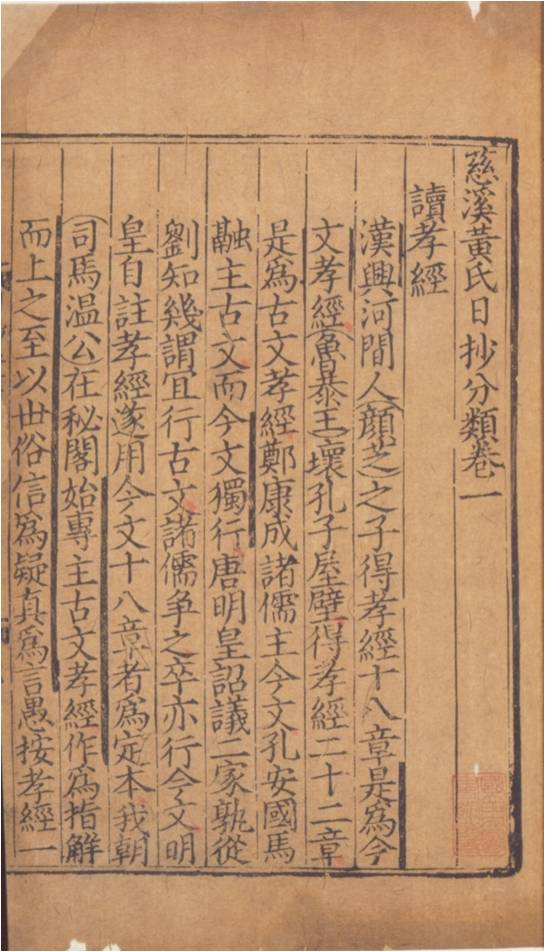 慈溪黃氏日抄分類卷一
讀孝經
漢興河間人顔芝之子得孝經十八章是爲今
文孝經魯恭王壞孔子屋壁得孝經二十二章
是爲古文孝經鄭康成諸儒主今文孔安國馬
融主古文而今文獨行唐明皇詔議二家孰從
劉知幾謂宜行古文諸儒争之卒亦行今文明
皇自註孝經遂用今文十八章者爲定本我朝
司馬温公在秘閣始專主古文孝經作爲指解
而上之至以世俗信爲疑真爲言愚按孝經一